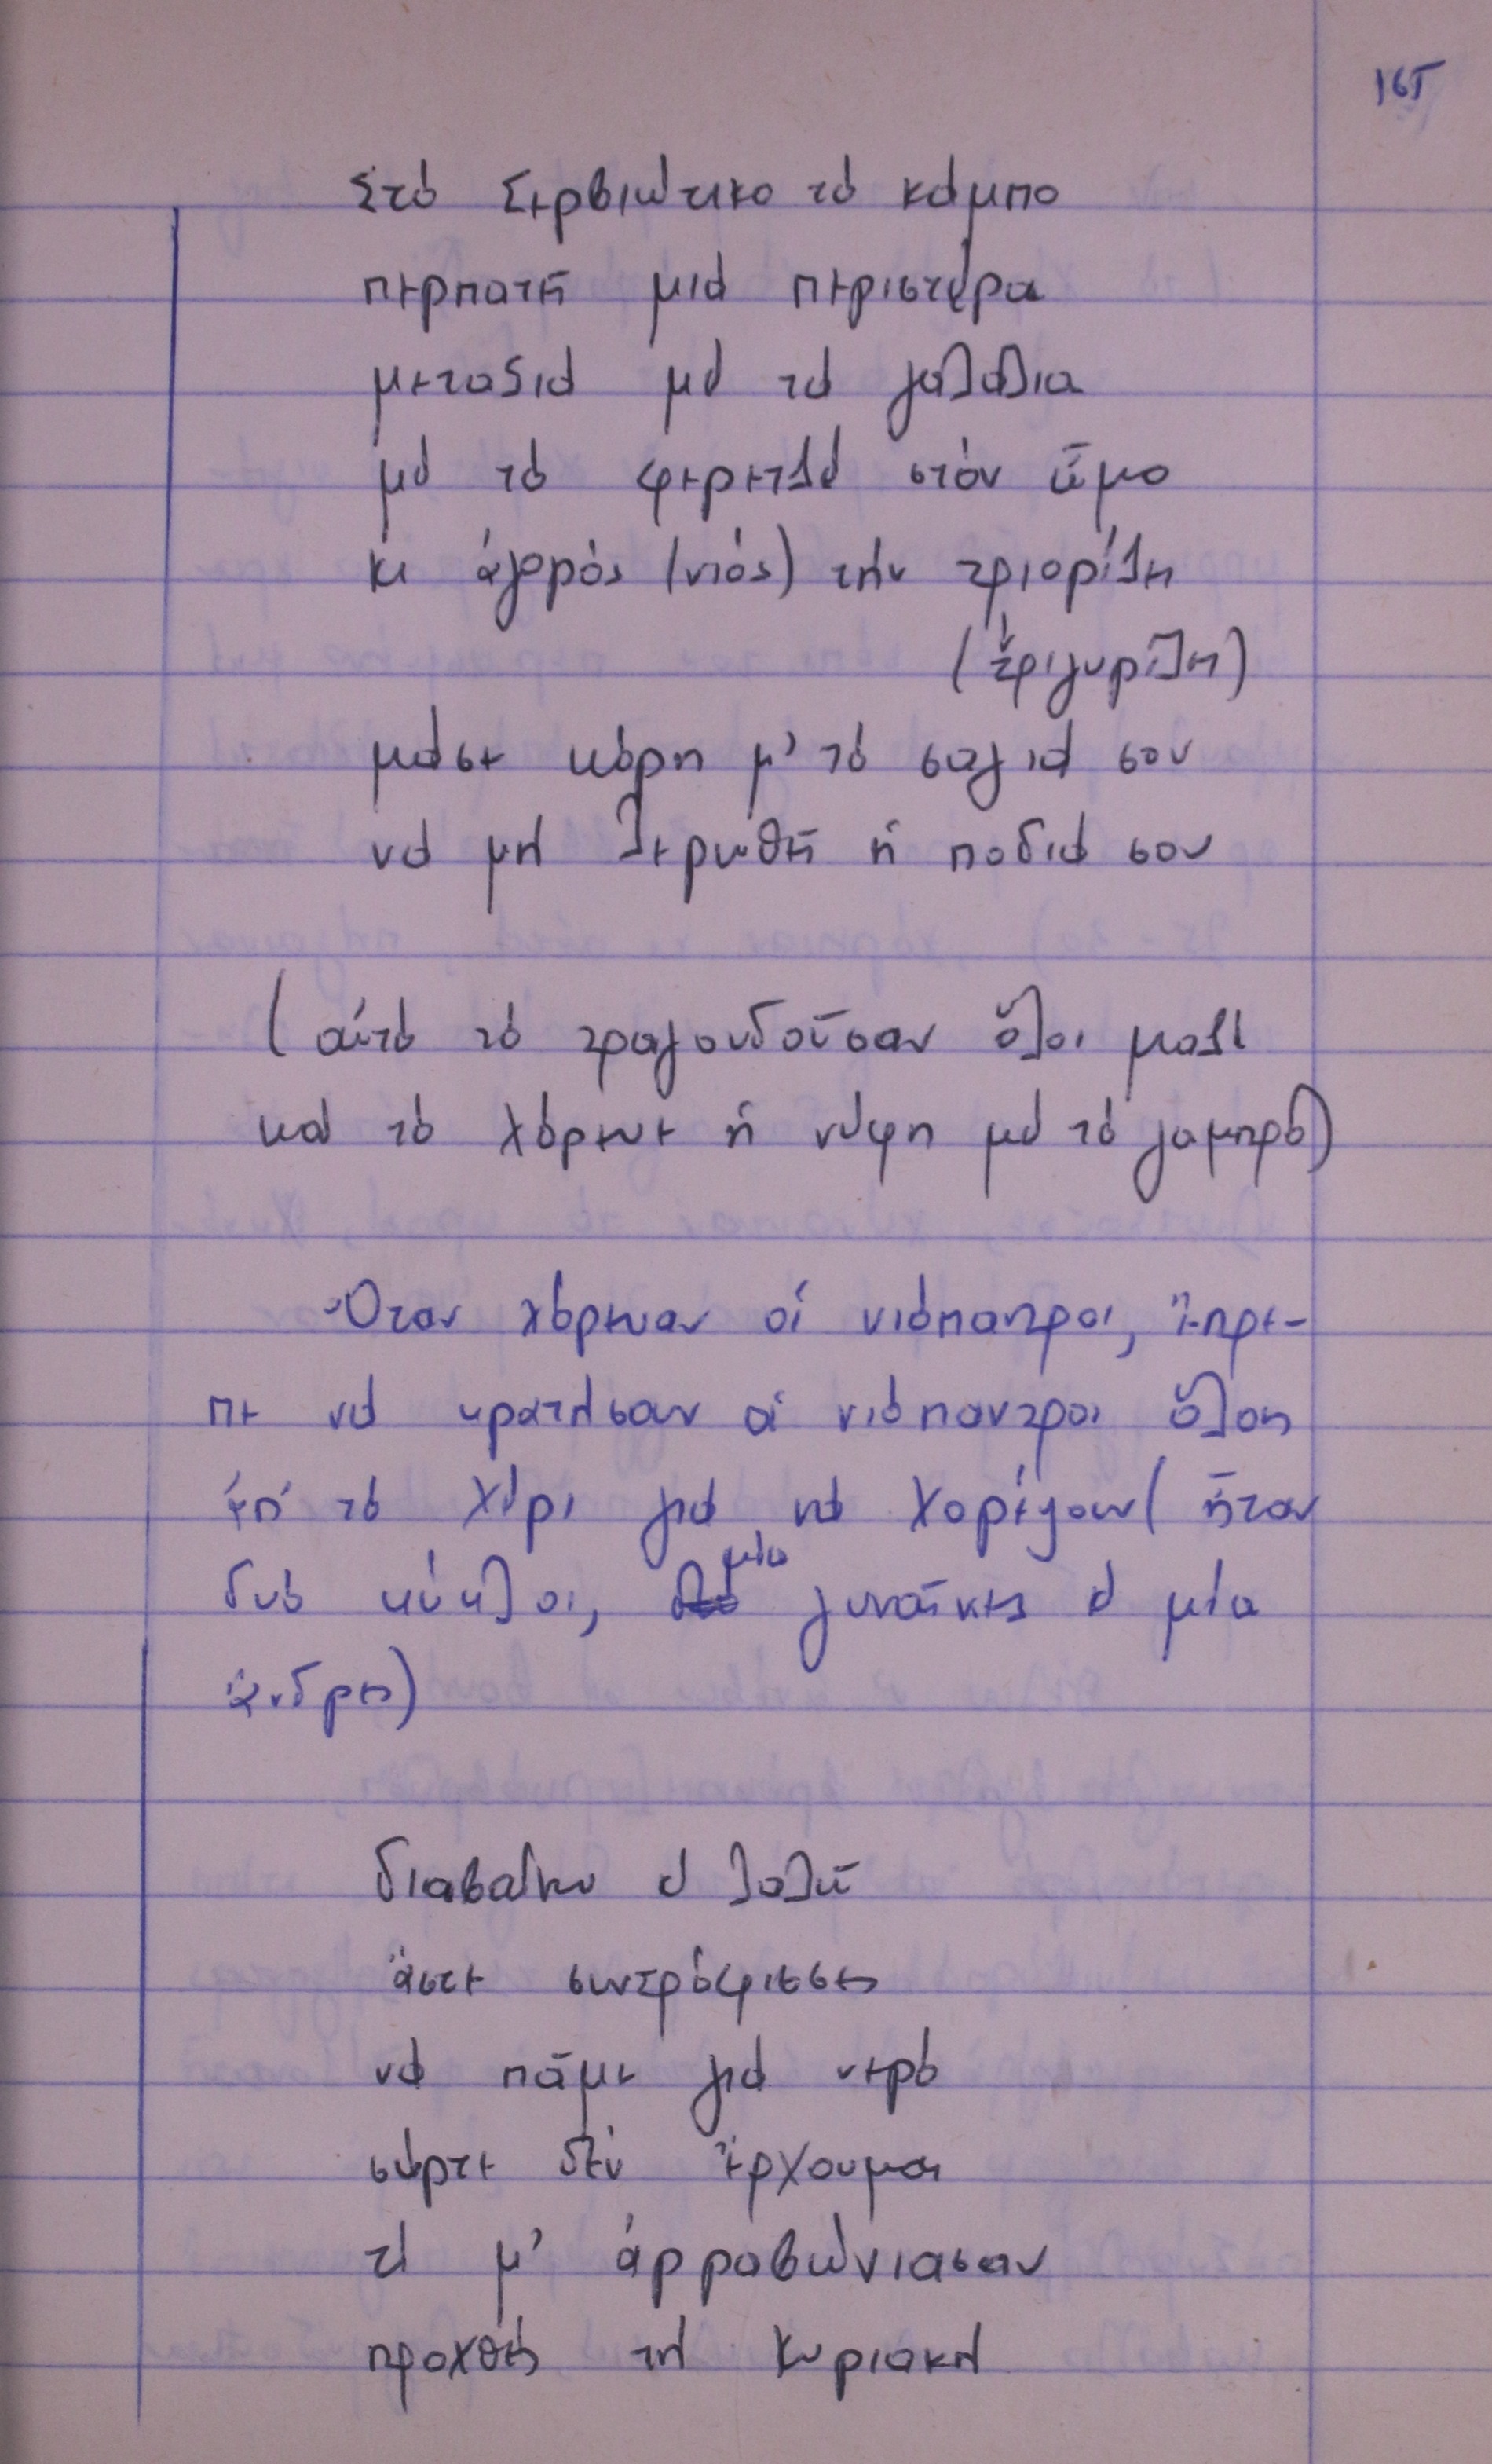 165
Στό Σερβιώτικο τό κάμπο
περπατεῖ μιά περιστέρα
μεταξιά μέ τά γαλάζια
μέ τό φερετζέ στόν ὦμο
κι ἀγορός (νιός) τήν τριορίζει
(τριγυρίζει)
μάσε κόρη μ' τό σαγιά σου
νά μή λερωθεῖ ἡ ποδιά σου
(αὐτό τό τραγουδοῦσαν ὅλοι μαζί
καί τό χόρευε ἡ νύφη μέ τό γαμπρό)
Ὅταν χόρευαν οἱ νιόπαντροι, ἔπρε-
πε νά κρατήσουν οἱ νιόπαντροι ὅλοι
ἀπ' τό χέρι γιά νά χορέψουν (ἦταν
δυό κύκλοι, μία γυναῖκες κ μία
ἄνδρες)
διαβαίνω κ λαλῶ
ἄστε συντρόφισσες
νά πᾶμε γιά νερό
σύρτε δέν ἔρχουμαι
τί μ' ἀρραβώνιασαν
προχθές τή Κυριακή